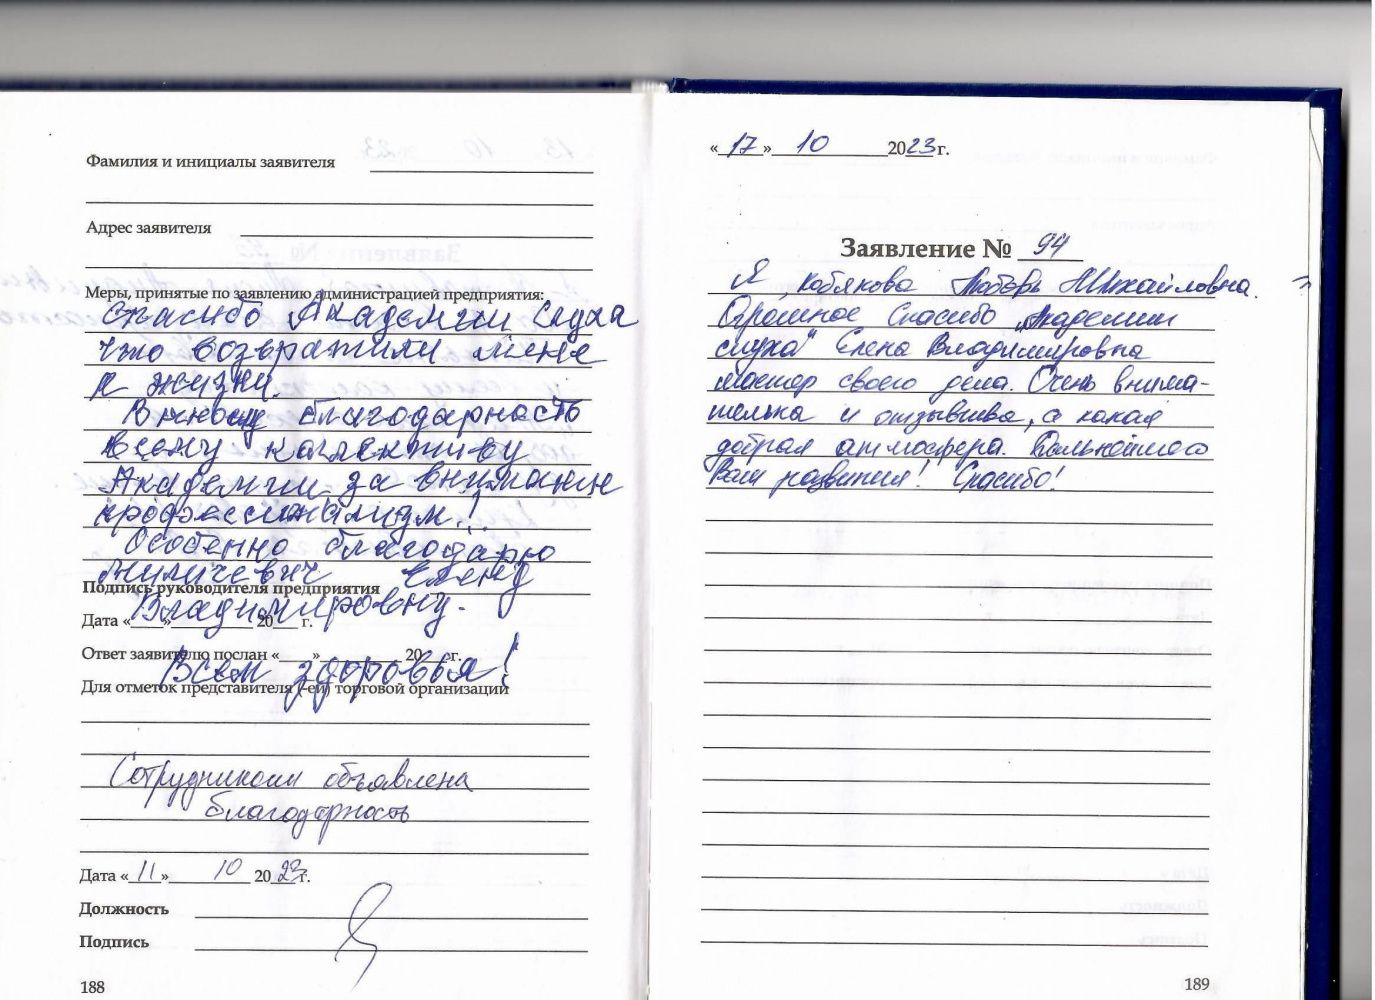 Фамилия и инициалы заявителя
Адрес заявителя
Меры, принятые по заявлению администрацией предприятия:
Спасибо Академии Слуха
что возвратили меня
к жизни.
Выношу благодарность
всему коллективу
Академии за внимание
профессионализм!
Особенно благодарю
Елену
Подпись руководителя предприятия
Владимировну.
Дата «___»__________ 20___ г.
Ответ заявителю послан «____»__________ 20___г.
Всем здоровья!
Для отметок представителя (-ей) торговой организации
Сотрудникам объявлена
благодарность
Дата « 11 » 10 2023 г.
Должность
Подпись
188
« 17 » 10 2023 г.
Заявление № 94
Я, Кобякова Любовь Михайловна.
Огромное Спасибо „Академии
слуха" Елена Владимировна
мастер своего дела. Очень внима-
тельна и отзывчива, а какая
добрая атмосфера. Дальнейшего
Вам развития! Спасибо!
189